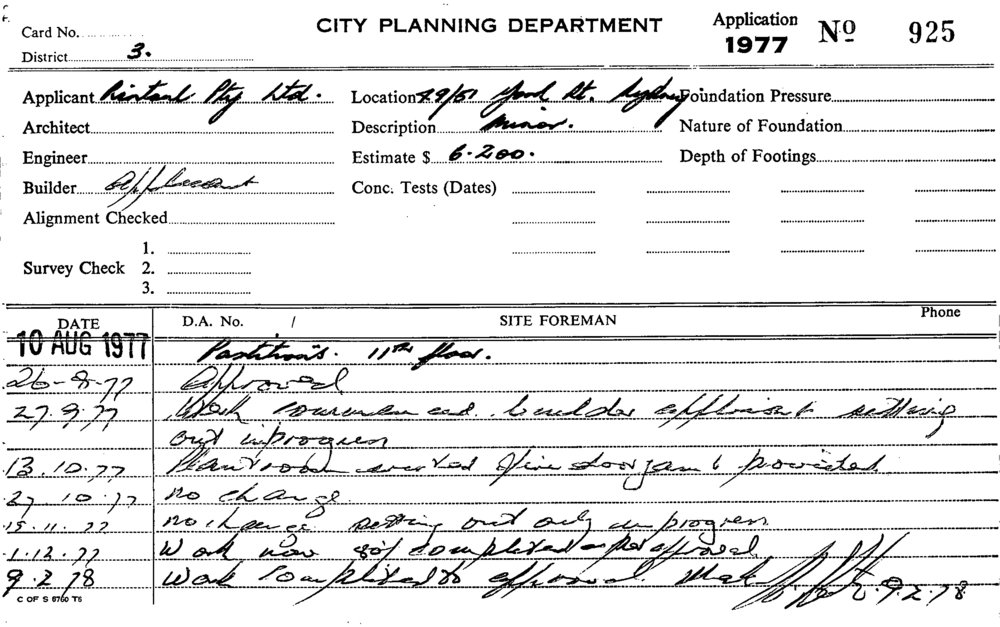 CITY PLANNING DEPARTMENT
Application
1977
No 925
Card No.
District 3.
Applicant Pty Ltd.
Location 49/51 York St. Sydney.
Foundation Pressure
Architect
Description Minor.
Nature of Foundation
Engineer
Estimate $ 6.200.
Depth of Footings
Builder Applicant
Conc. Tests (Dates)
Alignment Checked
1.
Survey Check 2.
3.
DATE D.A. No. / SITE FOREMAN Phone
10 AUG 1977 Partitions. 11th floor.
Approved
27.9.77 Work commenced. builder applicant setting
out in progress
13.10.77 Plantroom erected fire door jamb provided
27.10.77 no change
15.11.77 no change setting out only in progress
1.12.77 Work now 80% completed as per approval
9.2.78 Work completed to approval.
9.2.78
C OF S 6760 T6